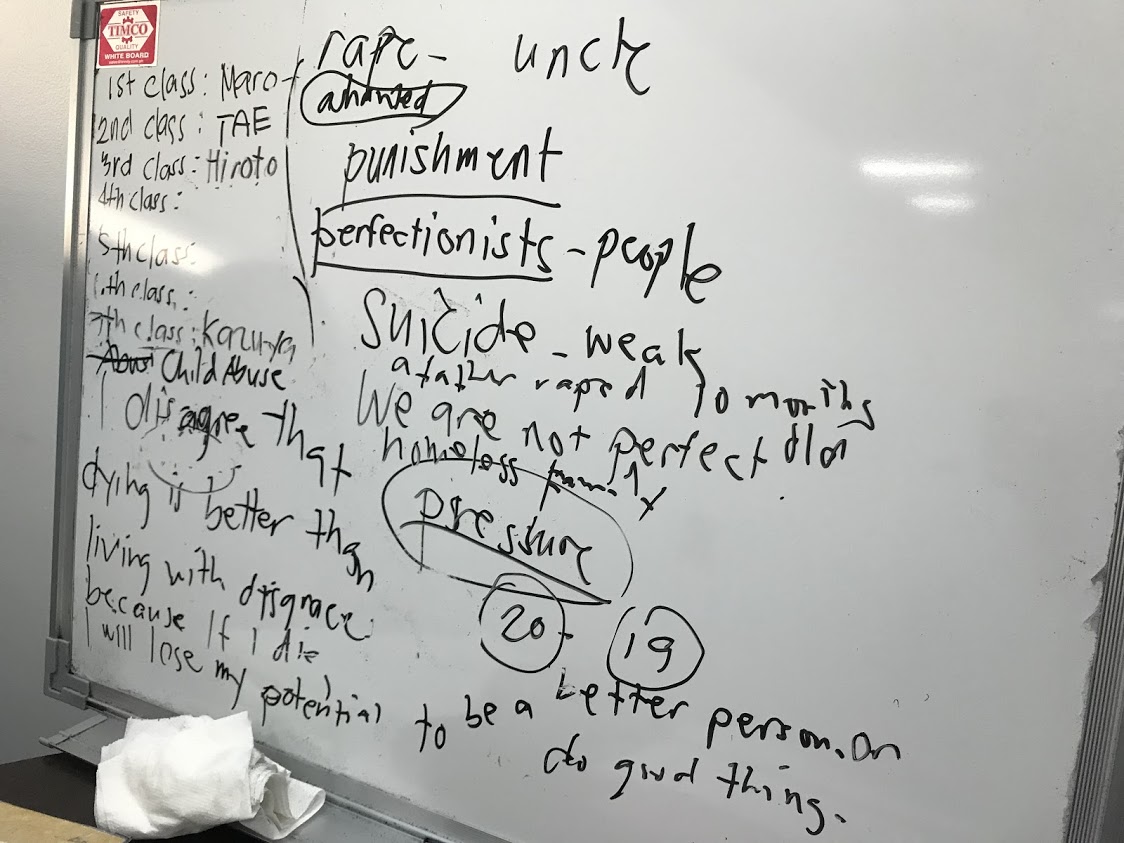 SAFETY
TIMCO
QUALITY
WHITE BOARD
1st class: Maro
2nd class: TAE
3rd class: Hiroto
4th class:
5th class:
6th class:
7th class: Kazuya
Child Abuse
I disagree that
dying is better than
living with disgrace
because If I die
I will lose my potential to be a better person. On
do good thing.
rape - uncle
punishment
perfectionists - people
Suicide - weak
a father raped 10 months
We are not perfect old
homeless family
pressure
20 - 19